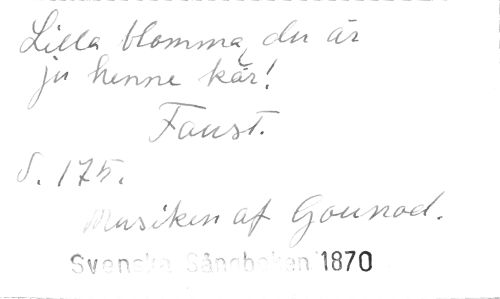 Lilla blomma, du är
ju henne kär!
Faust.
S. 175.
Musiken af Gounod.
Svenska Sångboken 1870